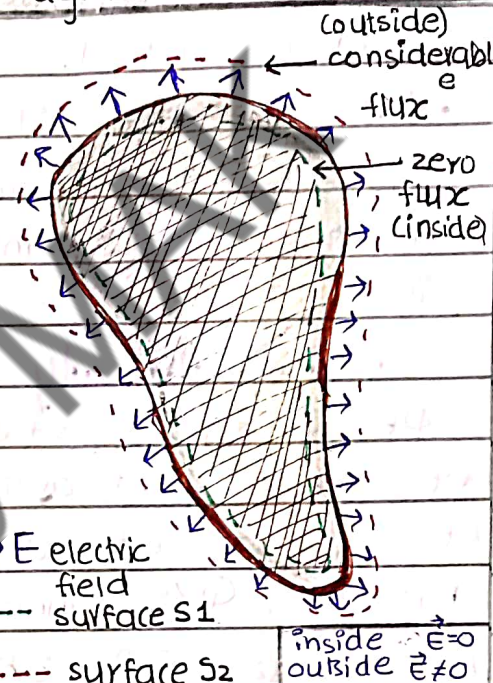 (outside)
considerabl
e
flux
zero
flux
(inside)
E electric
field
-- surface S1
--- surface S2
inside ∴ E⃗=0
outside E⃗≠0